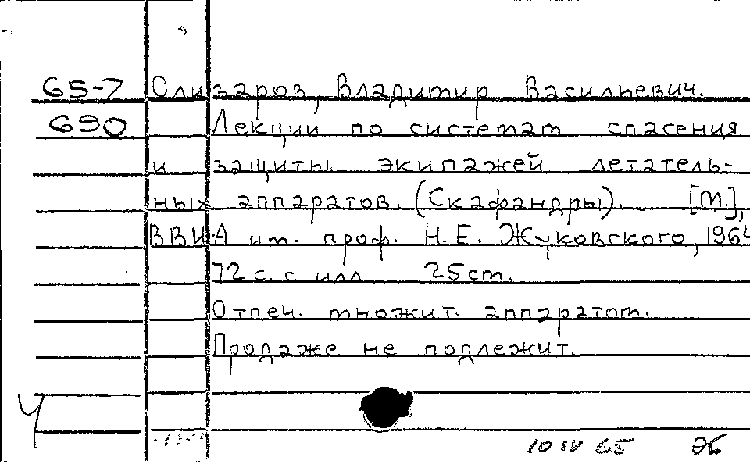 65-7 Слизаров, Владимир Васильевич.
690 Лекции по системам спасения
и защиты экипажей летатель-
ных аппаратов. (Скафандры). [М],
ВВИА им. проф. Н.Е. Жуковского, 1964
72 с. с илл. 25 см.
Отпеч. множит. аппаратом.
Продаже не подлежит.
Ч
10 IV 65